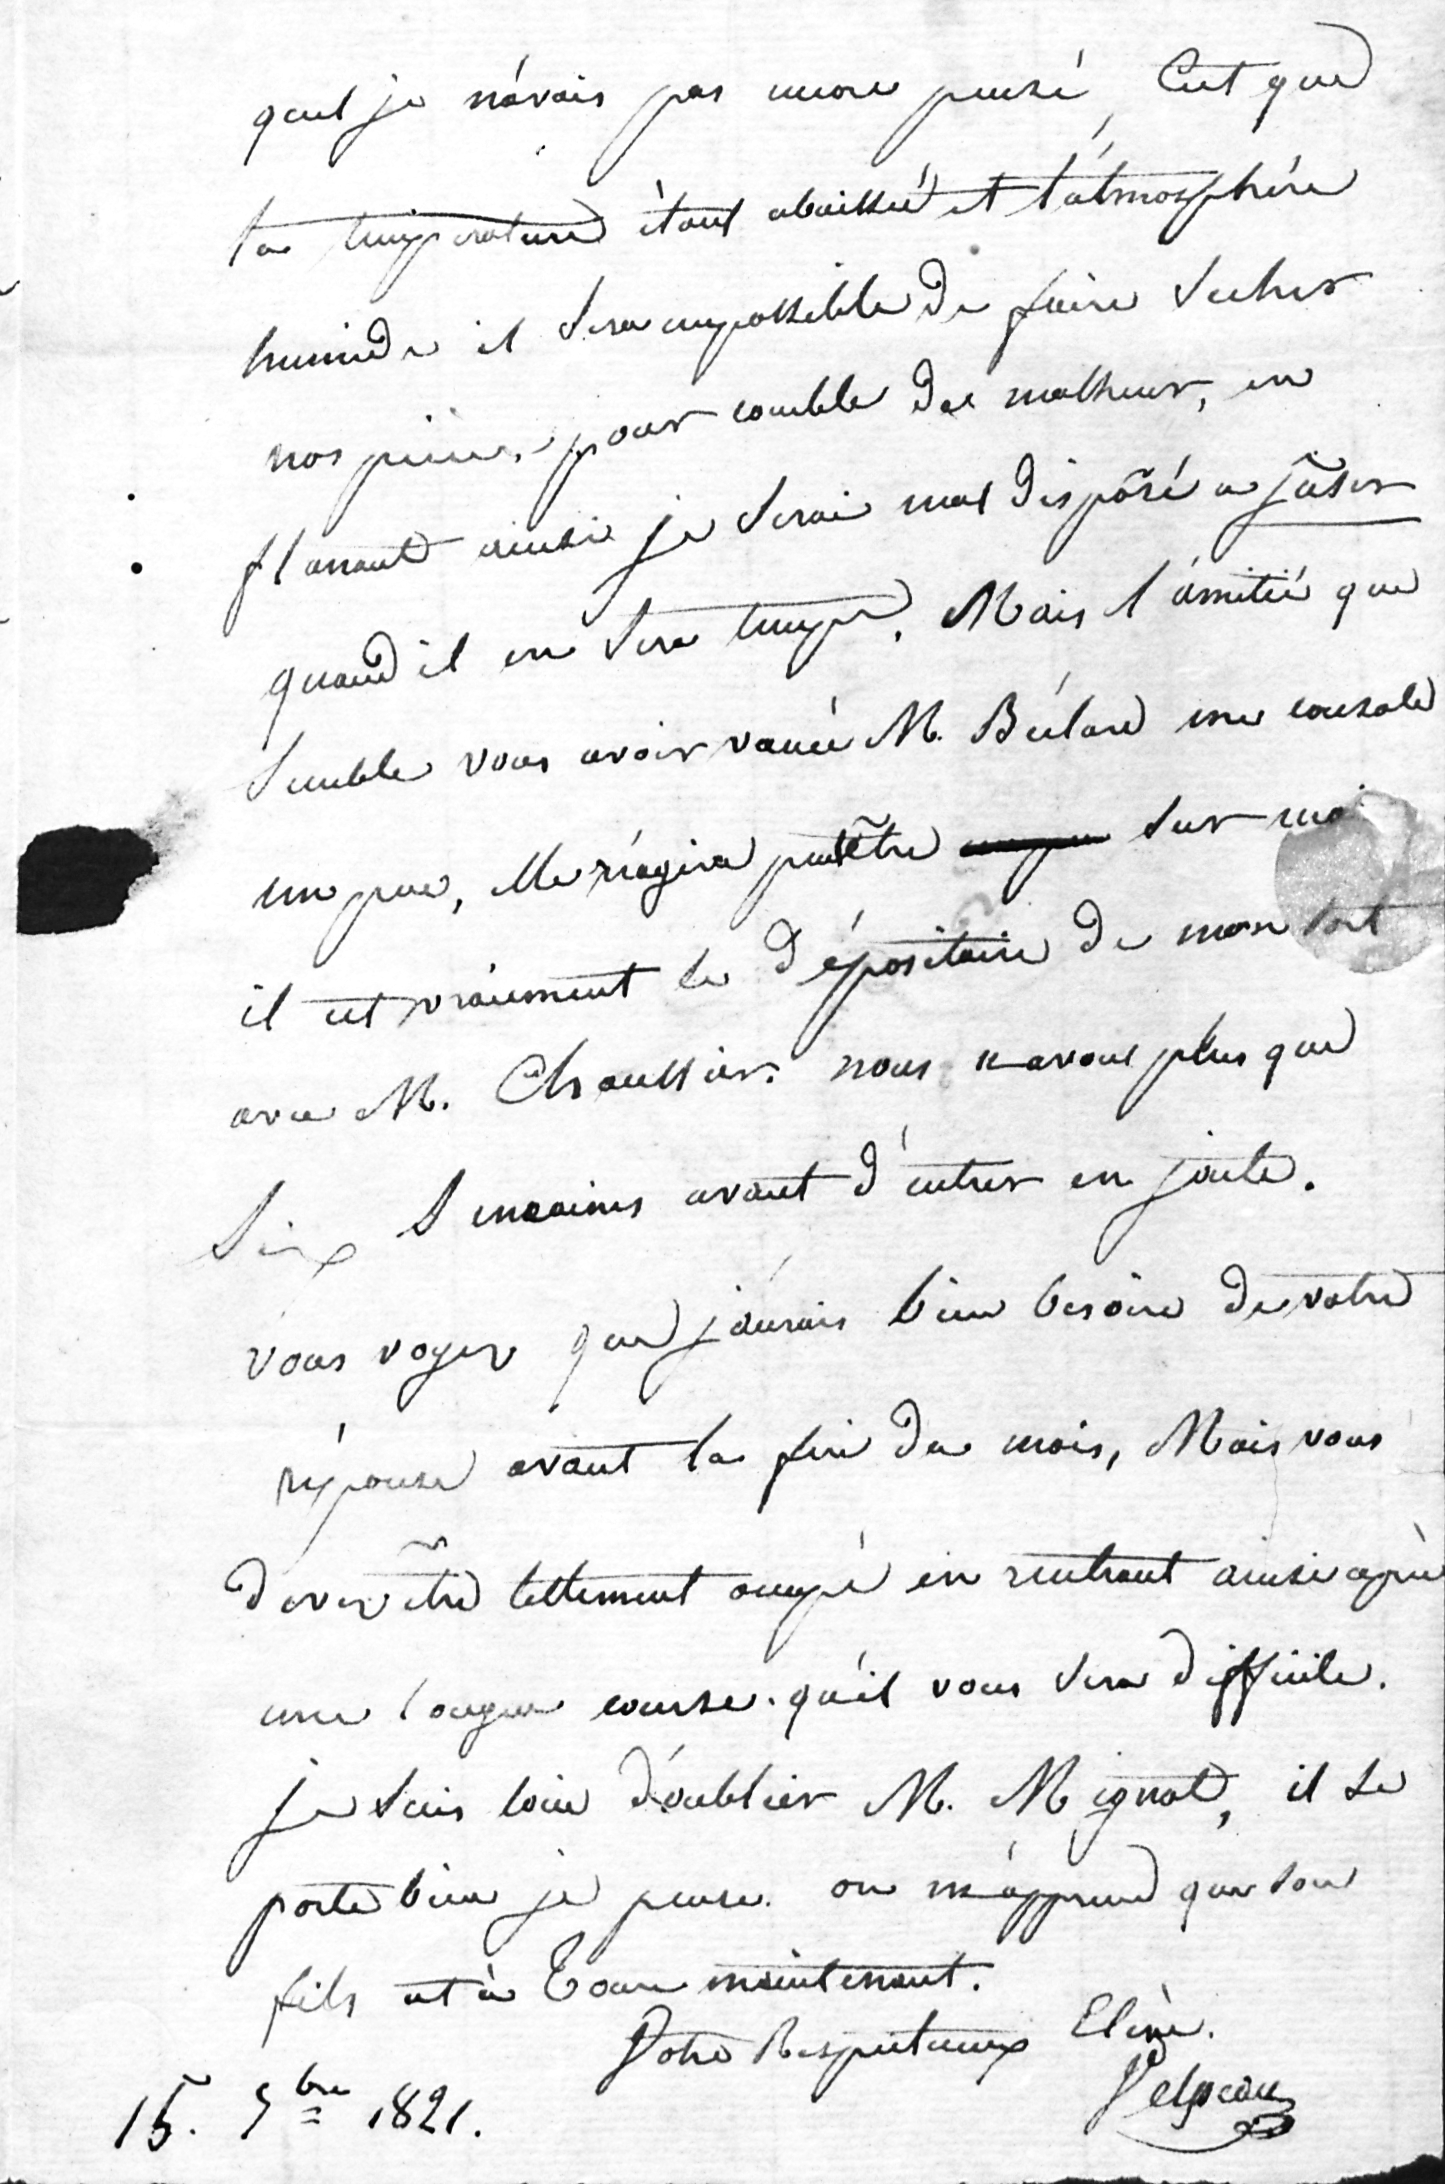 quel je n'avais pas encore pensé, C'est que
la température étant abaissée et l'atmosphère
humide il sera impossible de faire sécher
nos pièces, pour comble de malheur, en
flanant ainsi je serai mal disposé a jâser
quand il en sera temps. Mais l'amitié que
semble vous avoir vouée M. Béclard me console
un peu, elle réagira peutêtre sur moi
il est vraiement le dépositaire de mon sort
avec M. Chaussier. nous n'avons plus que
Six Semaines avant d'entrer en joute.
vous voyez que j'aurais bien besoin de votre
réponse avant la fin du mois, Mais vous
devez être tellement occupé en rentrant ainsi après
une longue course. qu'il vous sera difficile.
je suis loin d'oublier M. Mignot, il se
porte bien je pense. on m'apprend que son
fils est à Tours maintenant.
Votre Respectueux Elève.
Velpeau
15. 7bre 1821.